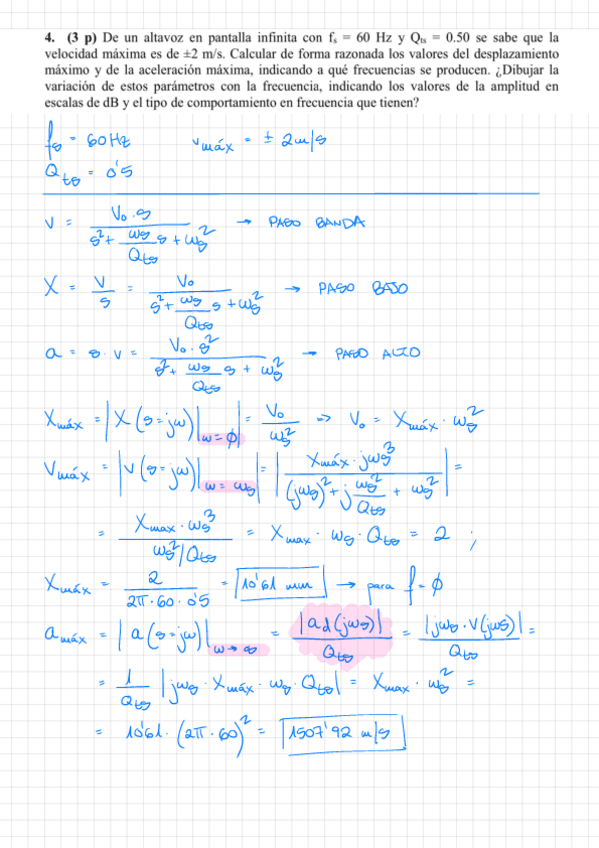 4. (3 p) De un altavoz en pantalla infinita con fs = 60 Hz y Qts = 0.50 se sabe que la
velocidad máxima es de ±2 m/s. Calcular de forma razonada los valores del desplazamiento
máximo y de la aceleración máxima, indicando a qué frecuencias se producen. ¿Dibujar la
variación de estos parámetros con la frecuencia, indicando los valores de la amplitud en
escalas de dB y el tipo de comportamiento en frecuencia que tienen?
fs = 60Hz vmáx = ± 2m/s
Qts = 0'5
V = V0·s / (s² + (ωs/Qts) s + ωs²) → PASO BANDA
X = V/s = V0 / (s² + (ωs/Qts) s + ωs²) → PASO BAJO
a = s·V = V0·s² / (s² + (ωs/Qts) s + ωs²) → PASO ALTO
Xmáx = |X(s=jω)|ω=ϕ| = V0/ωs² => V0 = Xmáx·ωs²
Vmáx = |V(s=jω)|ω=ωs| = |Xmáx·jωs³ / ((jωs)² + j ωs²/Qts + ωs²)| =
= Xmax·ωs³ / (ωs²/Qts) = Xmax·ωs·Qts = 2 ;
Xmáx = 2 / (2π·60·0'5) = 10'61 mm → para f=ϕ
amáx = |a(s=jω)|ω→∞ = |ad(jωs)| / Qts = |jωs·V(jωs)| / Qts =
= 1/Qts |jωs·Xmáx·ωs·Qts| = Xmax·ωs² =
= 10'61·(2π·60)² = 1507'92 m/s